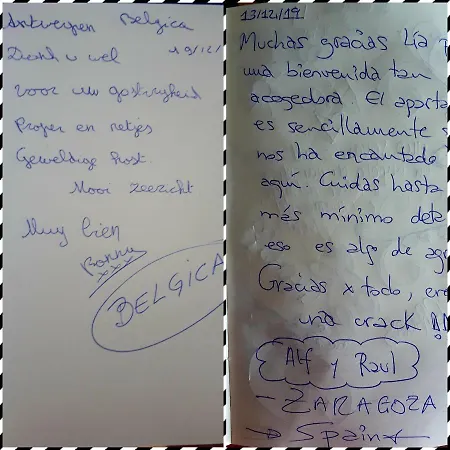 Antwerpen Belgica
Dank u wel 19/12/
voor uw gastvrijheid
Proper en netjes
Geweldige host
Mooi zeezicht
Muy bien
Ronny
xxx
BELGICA
13/12/19
Muchas gracias Lía
una bienvenida tan
acogedora. El aparta
es sencillamente
nos ha encantado
aquí. Cuidas hasta
más mínimo deta
eso es algo de agr
Gracias x todo, er
una crack!!
Alf y Raul
- ZARAGOZA
→ Spain ←